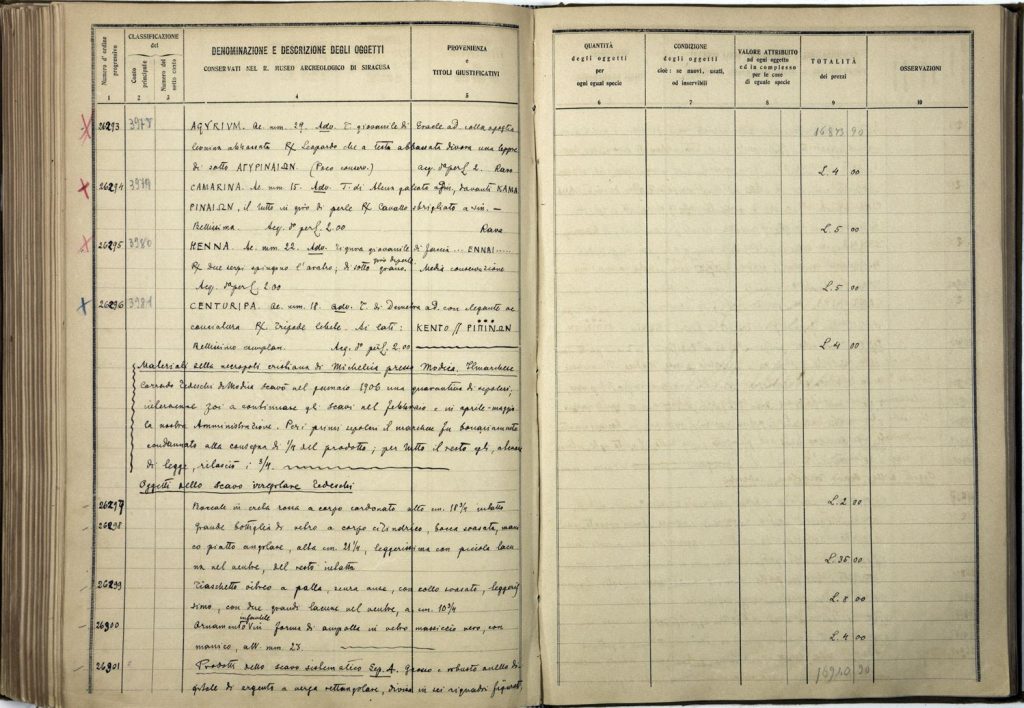 Numero d'ordine progressivo
CLASSIFICAZIONE del
Conto principale
Numero del sotto conto
DENOMINAZIONE E DESCRIZIONE DEGLI OGGETTI
CONSERVATI NEL R. MUSEO ARCHEOLOGICO DI SIRACUSA
PROVENIENZA
e
TITOLI GIUSTIFICATIVI
1 2 3 4 5
26293 3978 AGYRIVM. Ae. mm. 29. Adv. T. giovanile di Eracle ad. colla spoglia
leonina Rx Leopardo che a testa abbassata divora una lepre
di sotto ΑΓΥΡΙΝΑΙΩΝ. (Poco conserv.) acq. Raro
26294 3979 CAMARINA. Ae. mm. 15. Adv. T. di Atena galeata davanti ΚΑΜΑ
ΡΙΝΑΙΩΝ, il tutto in giro di perle Rx Cavallo sbrigliato a sin. —
Bellissima. Acq. 2.00 Rara
26295 3980 HENNA. Ae. mm. 22. Adv. Figura giovanile di ... ENNAI ......
Rx due serpi spingono l'aratro; di sotto grano. giro di perle Media conservazione
Acq. 2.00
26296 3981 CENTURIPA. Ae. mm. 18. Adv. T. di Demetra ad. con elegante ac
conciatura Rx Tripode lebete. Ai lati: KENTO // ΡΙΠΙΝΩΝ
Bellissimo esemplare. Acq. 2.00
Materiali della necropoli cristiana di Michelica presso Modica. Il marchese
Corrado Tedeschi di Modica scavò nel gennaio 1906 una quarantina di sepolcri;
poi a continuare gli scavi nel febbraio e in aprile-maggio
la nostra Amministrazione. Per i primi sepolcri il marchese fu bonariamente
condannato alla consegna di 1/4 del prodotto; per tutto il resto gli,
di legge, rilasciò i 3/4.
Oggetti dello scavo irregolare Tedeschi
26297 Boccale in creta rossa a corpo cordonato alto cm. 18 3/4 intatto
26298 Grande bottiglia di vetro a corpo cilindrico, bocca svasata, mani
co piatto angolare, alta cm. 21 1/2, leggerissima con piccola lacu
na nel ventre, del resto intatta
26299 Fiaschetto vitreo a palla, senza anse, con collo svasato, leggeris
simo, con due grandi lacune nel ventre, a cm. 10 3/4
26300 Ornamento infantile in forma di ampolla in vetro massiccio nero, con
manico, alt. mm. 23.
26301 Prodotti dello scavo sistematico Sep. A. Grosso e robusto anello di
gitale di argento a verga rettangolare, divisa in sei riquadri figurati,
QUANTITÀ
degli oggetti
per
ogni egual specie
CONDIZIONE
degli oggetti
cioè: se nuovi, usati,
od inservibili
VALORE ATTRIBUITO
ad ogni oggetto
ed in complesso
per le cose
di eguale specie
TOTALITÀ
dei prezzi
OSSERVAZIONI
6 7 8 9 10
16873 90
L. 4 00
L. 5 00
L. 5 00
L. 4 00
L. 2 00
L. 35 00
L. 8 00
L. 4 00
16940 90